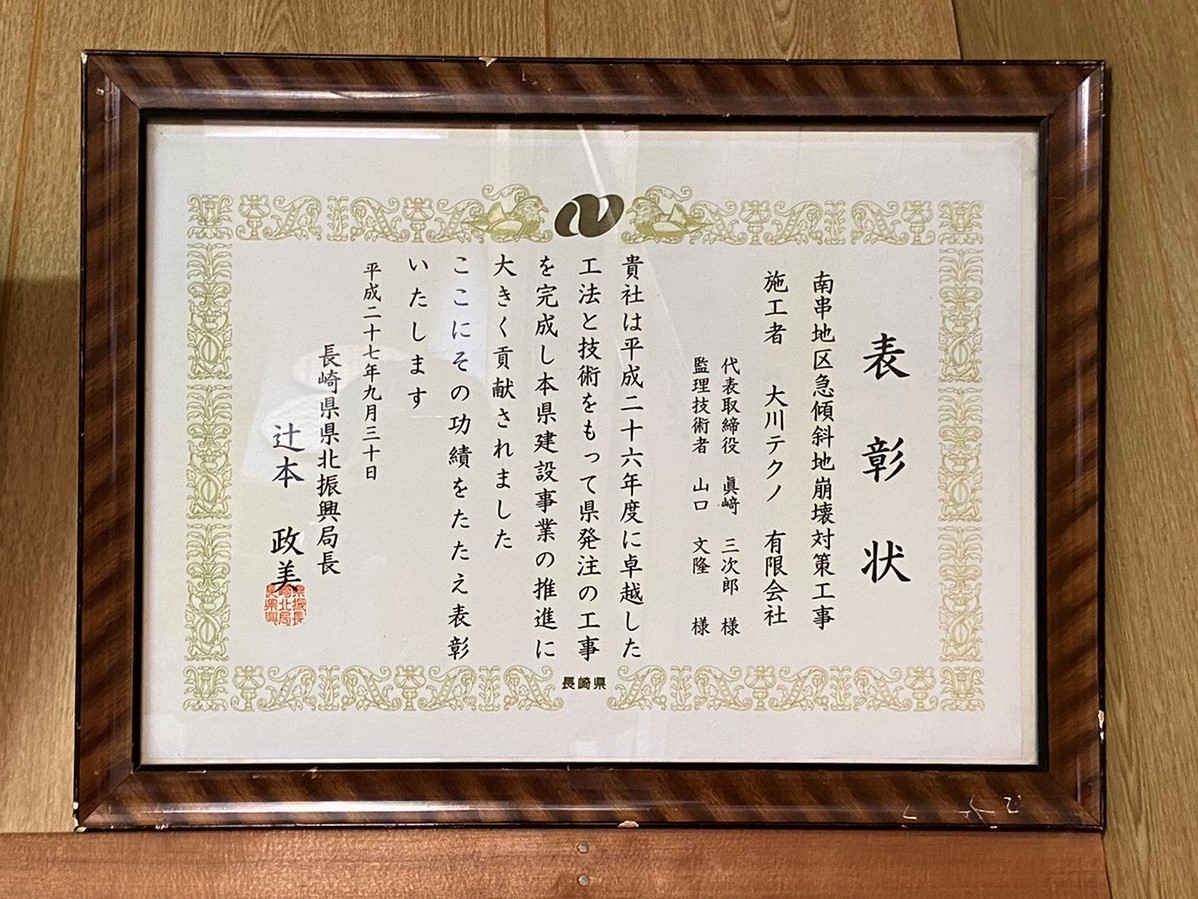 表彰状
南串地区急傾斜地崩壊対策工事
施工者 大川テクノ 有限会社
代表取締役 眞﨑 三次郎 様
監理技術者 山口 文隆 様
貴社は平成二十六年度に卓越した
工法と技術をもって県発注の工事
を完成し本県建設事業の推進に
大きく貢献されました
ここにその功績をたたえ表彰
いたします
平成二十七年九月三十日
長崎県県北振興局長
辻本 政美
長崎県